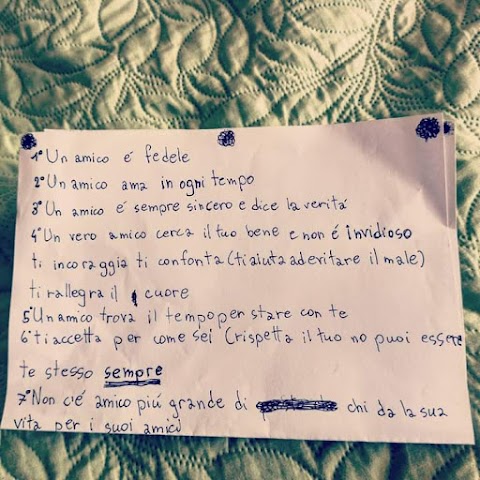 1° Un amico é fedele
2° Un amico ama in ogni tempo
3° Un amico é sempre sincero e dice la veritá
4° Un vero amico cerca il tuo bene e non é invidioso
ti incoraggia ti confonta (ti aiuta ad evitare il male)
ti rallegra il cuore
5° Un amico trova il tempo per stare con te
6° ti accetta per come sei (rispetta il tuo no puoi essere
te stesso sempre
7° Non c'é amico piú grande di chi da la sua
vita per i suoi amici